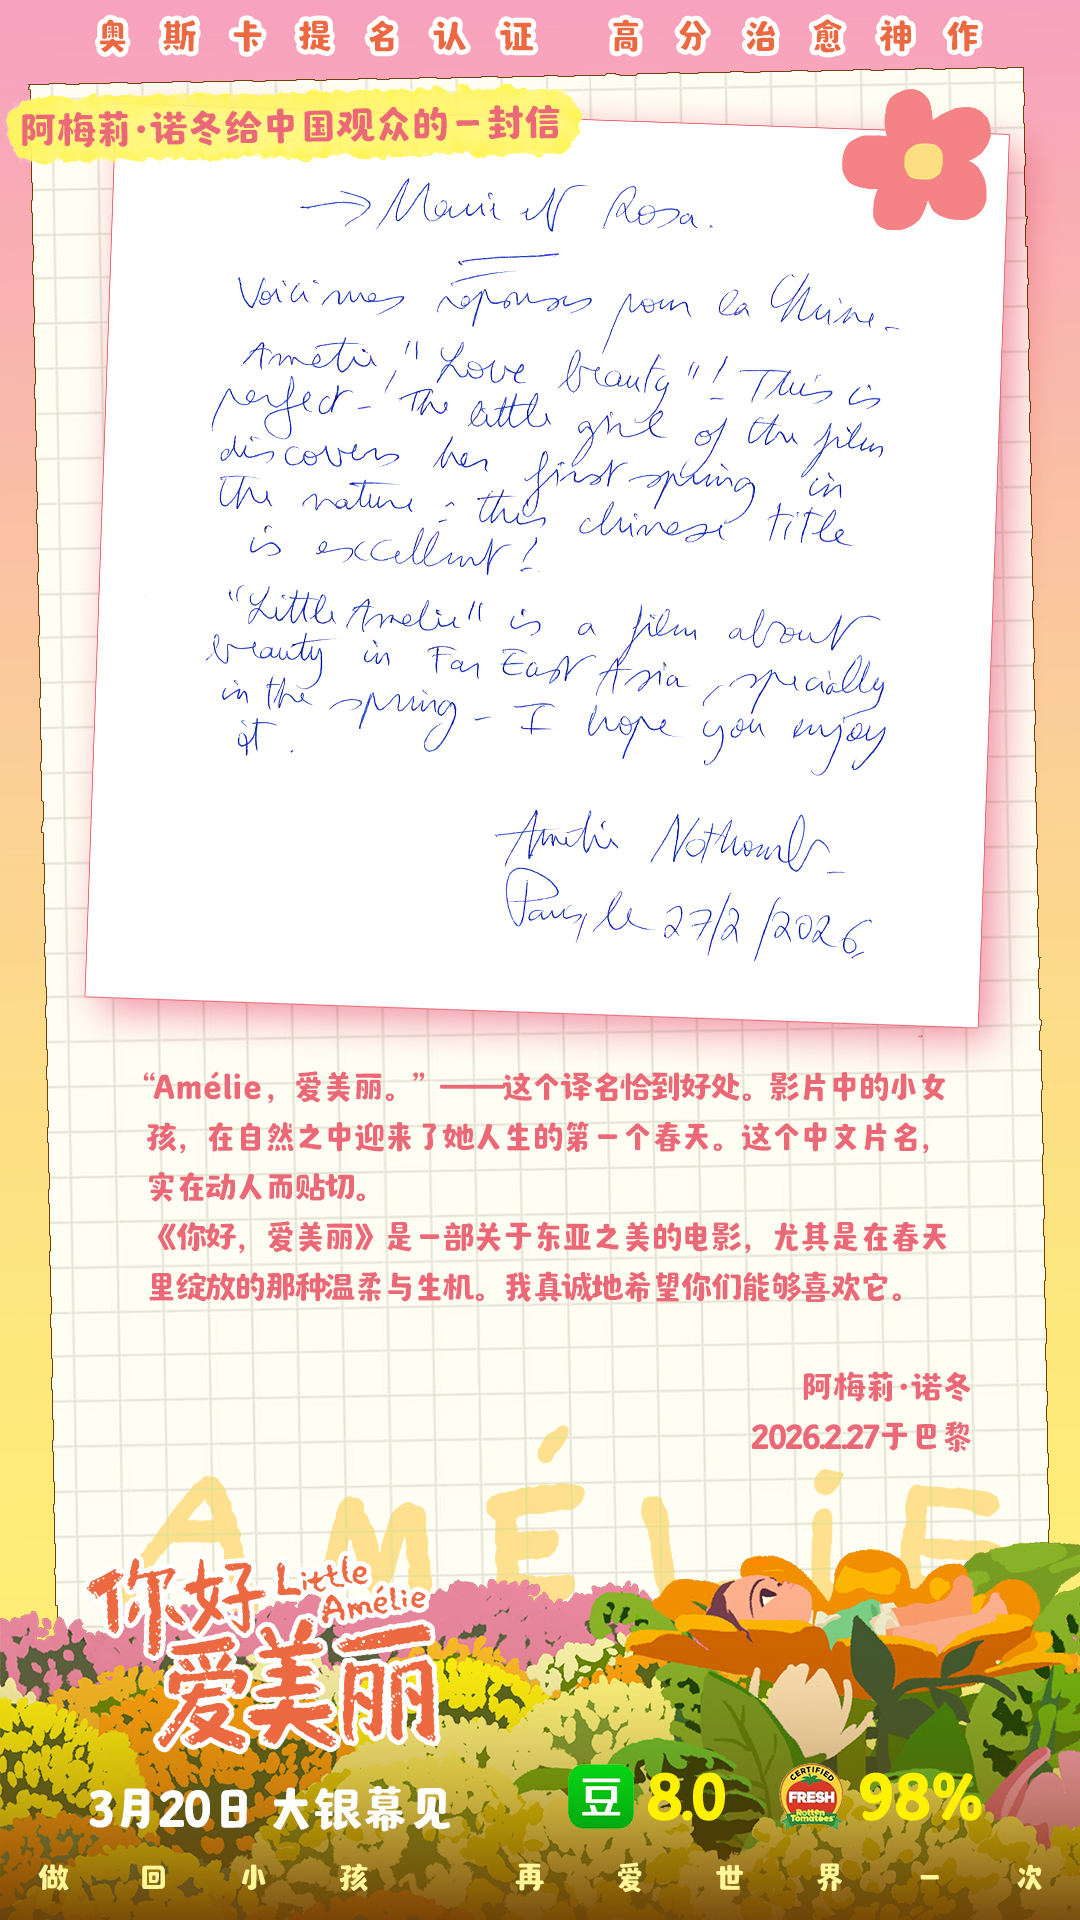 奥斯卡提名认证 高分治愈神作
阿梅莉·诺冬给中国观众的一封信
→ Marie et Rosa.
Voici mes réponses pour la Chine-
Amélie, "Love beauty"! This is
perfect- The little girl of the film
discovers her first spring in
the nature - this chinese title
is excellent!
"Little Amélie" is a film about
beauty in Far East Asia, specially
in the spring - I hope you enjoy
it.
Amélie Nothomb-
Paris, le 27/2/2026.
“Amélie，爱美丽。”——这个译名恰到好处。影片中的小女
孩，在自然之中迎来了她人生的第一个春天。这个中文片名，
实在动人而贴切。
《你好，爱美丽》是一部关于东亚之美的电影，尤其是在春天
里绽放的那种温柔与生机。我真诚地希望你们能够喜欢它。
阿梅莉·诺冬
2026.2.27于巴黎
AMÉLiE
你好 Little
Amélie
爱美丽
3月20日 大银幕见
豆 8.0 CERTIFIED FRESH Rotten Tomatoes 98%
做回小孩 再爱世界一次